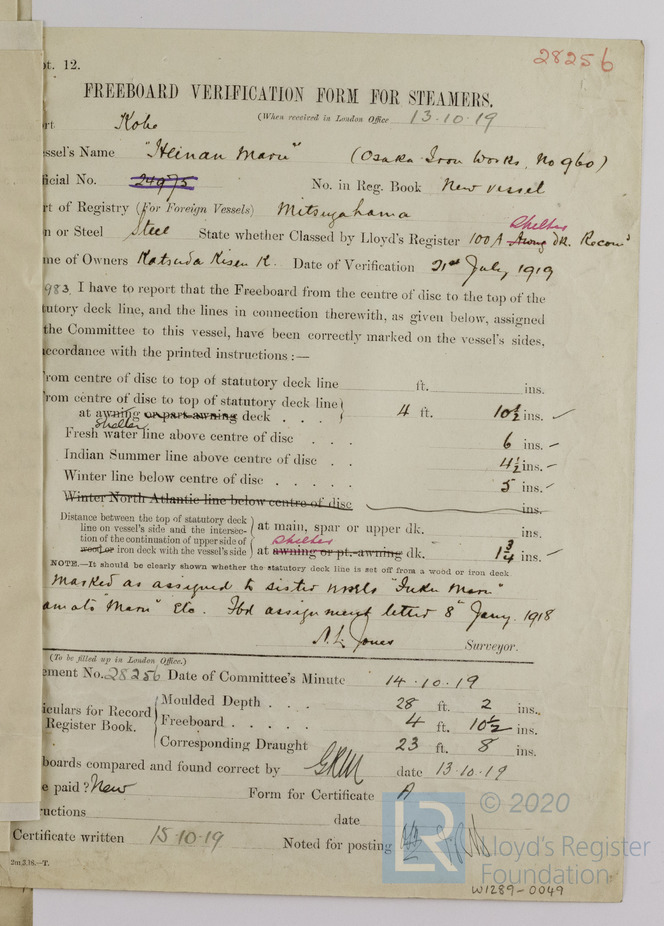 pt. 12.
28256
FREEBOARD VERIFICATION FORM FOR STEAMERS.
(When received in London Office 13.10.19
ort Kobe
essel's Name "Heinan Maru" (Osaka Iron Works, No 960)
ficial No. 24975 No. in Reg. Book New vessel
rt of Registry (For Foreign Vessels) Mitsugahama
Shelter
n or Steel Steel State whether Classed by Lloyd's Register 100A Awng dk. Recomd
me of Owners Katsuda Kisen K. Date of Verification 21st July, 1919
983 I have to report that the Freeboard from the centre of disc to the top of the
tutory deck line, and the lines in connection therewith, as given below, assigned
the Committee to this vessel, have been correctly marked on the vessel's sides,
ccordance with the printed instructions :—
From centre of disc to top of statutory deck line ft. ins.
From centre of disc to top of statutory deck line
at awning or part awning deck . . . 4 ft. 10½ ins.
Shelter
Fresh water line above centre of disc . . . 6 ins.
Indian Summer line above centre of disc . . 4½ ins.
Winter line below centre of disc . . . . . 5 ins.
Winter North Atlantic line below centre of disc ins.
Distance between the top of statutory deck
line on vessel's side and the intersec-
tion of the continuation of upper side of
wood or iron deck with the vessel's side
at main, spar or upper dk. ins.
Shelter
at awning or pt.-awning dk. 1¾ ins.
NOTE.—It should be clearly shown whether the statutory deck line is set off from a wood or iron deck
Marked as assigned to sister vessels "Fuku Maru"
amato "Maru" Etc. Fbd assignment letter 8" Jany. 1918
A.L. Jones Surveyor.
(To be filled up in London Office.)
ement No. 28256 Date of Committee's Minute 14.10.19
iculars for Record
Register Book.
Moulded Depth . . . 28 ft. 2 ins.
Freeboard . . . . . 4 ft. 10½ ins.
Corresponding Draught 23 ft. 8 ins.
boards compared and found correct by date 13.10.19
e paid? New Form for Certificate A
ructions date
Certificate written 15.10.19 Noted for posting
2m.3.18.—T.
© 2020
LR
Lloyd's Register
Foundation
W1289-0049